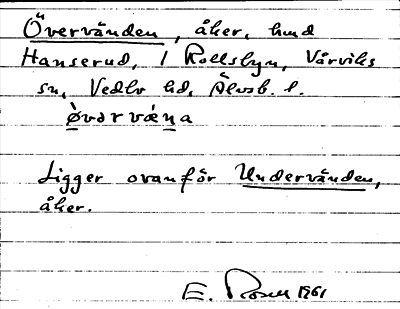 Övervänden, åker, hmd
Hanserud, 1 Rollsbyn, Vårviks
sn, Vedbo hd, Älvsb. l.
øvərvæna
Ligger ovanför Undervänden,
åker.
E. Rosell 1961